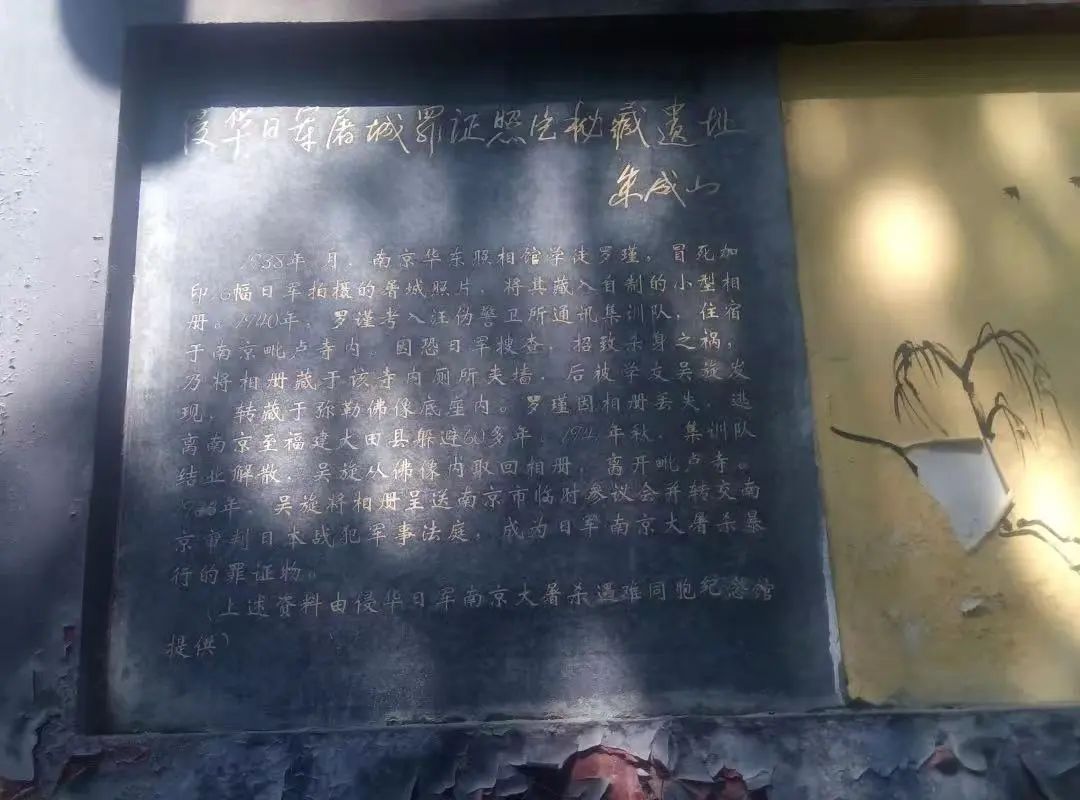 侵华日军屠城罪证照片秘藏遗址
朱成山
1938年 月，南京华东照相馆学徒罗瑾，冒死加
印16幅日军拍摄的屠城照片，将其藏入自制的小型相
册。1940年，罗瑾考入汪伪警卫所通讯集训队，住宿
于南京毗卢寺内。因恐日军搜查，招致杀身之祸，
乃将相册藏于该寺内厕所夹墙，后被学友吴旋发
现，转藏于弥勒佛像底座内。罗瑾因相册丢失，逃
离南京至福建大田县躲避60多年。1941年秋，集训队
结业解散，吴旋从佛像内取回相册，离开毗卢寺。
年，吴旋将相册呈送南京市临时参议会并转交南
京审判日本战犯军事法庭，成为日军南京大屠杀暴
行的罪证物。
（上述资料由侵华日军南京大屠杀遇难同胞纪念馆
提供）